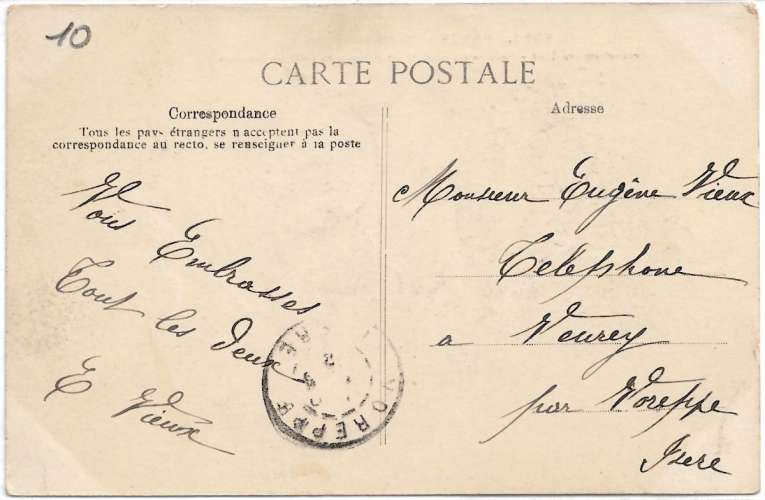 10
CARTE POSTALE
Correspondance
Tous les pays étrangers n'acceptent pas la
correspondance au recto, se renseigner à la poste
Vous Embrasses
Tout les deux
E Vieux
Adresse
Monsieur Eugène Vieux
Telephone
a Veurey
par Voreppe
Isere
VOREPPE